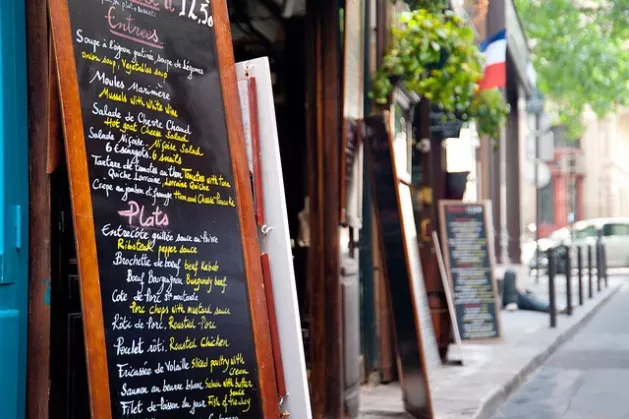 12,50
Entrees
Soupe à l'oignon gratinée, soupe de légumes
onion soup, Vegetables soup
Moules Marinière
Mussels with white wine
Salade de Chevre Chaud
Hot goat Cheese Salad
Salade Niçoise Niçoise Salade
6 Escargots 6 snails
Tartare de tomates au thon Tomatoes with Tuna
Quiche Lorraine Lorraine Quiche
Crepe au jambon et fromage Ham and Cheese Pancake
Plats
Entrecôte grillée sauce au poivre
Ribsteak pepper sauce
Brochette de boeuf Beef Kebab
Boeuf Bourguignon Burgundy beef
Cote de Porc st moutarde
Porc chops with mustard sauce
Rôti de Porc Roasted Porc
Poulet rôti. Roasted Chicken
Fricassee de Volaille Sliced poultry with Cream
Saumon au beurre blanc Salmon with butter sauce
Filet de poisson du jour Fish of the day